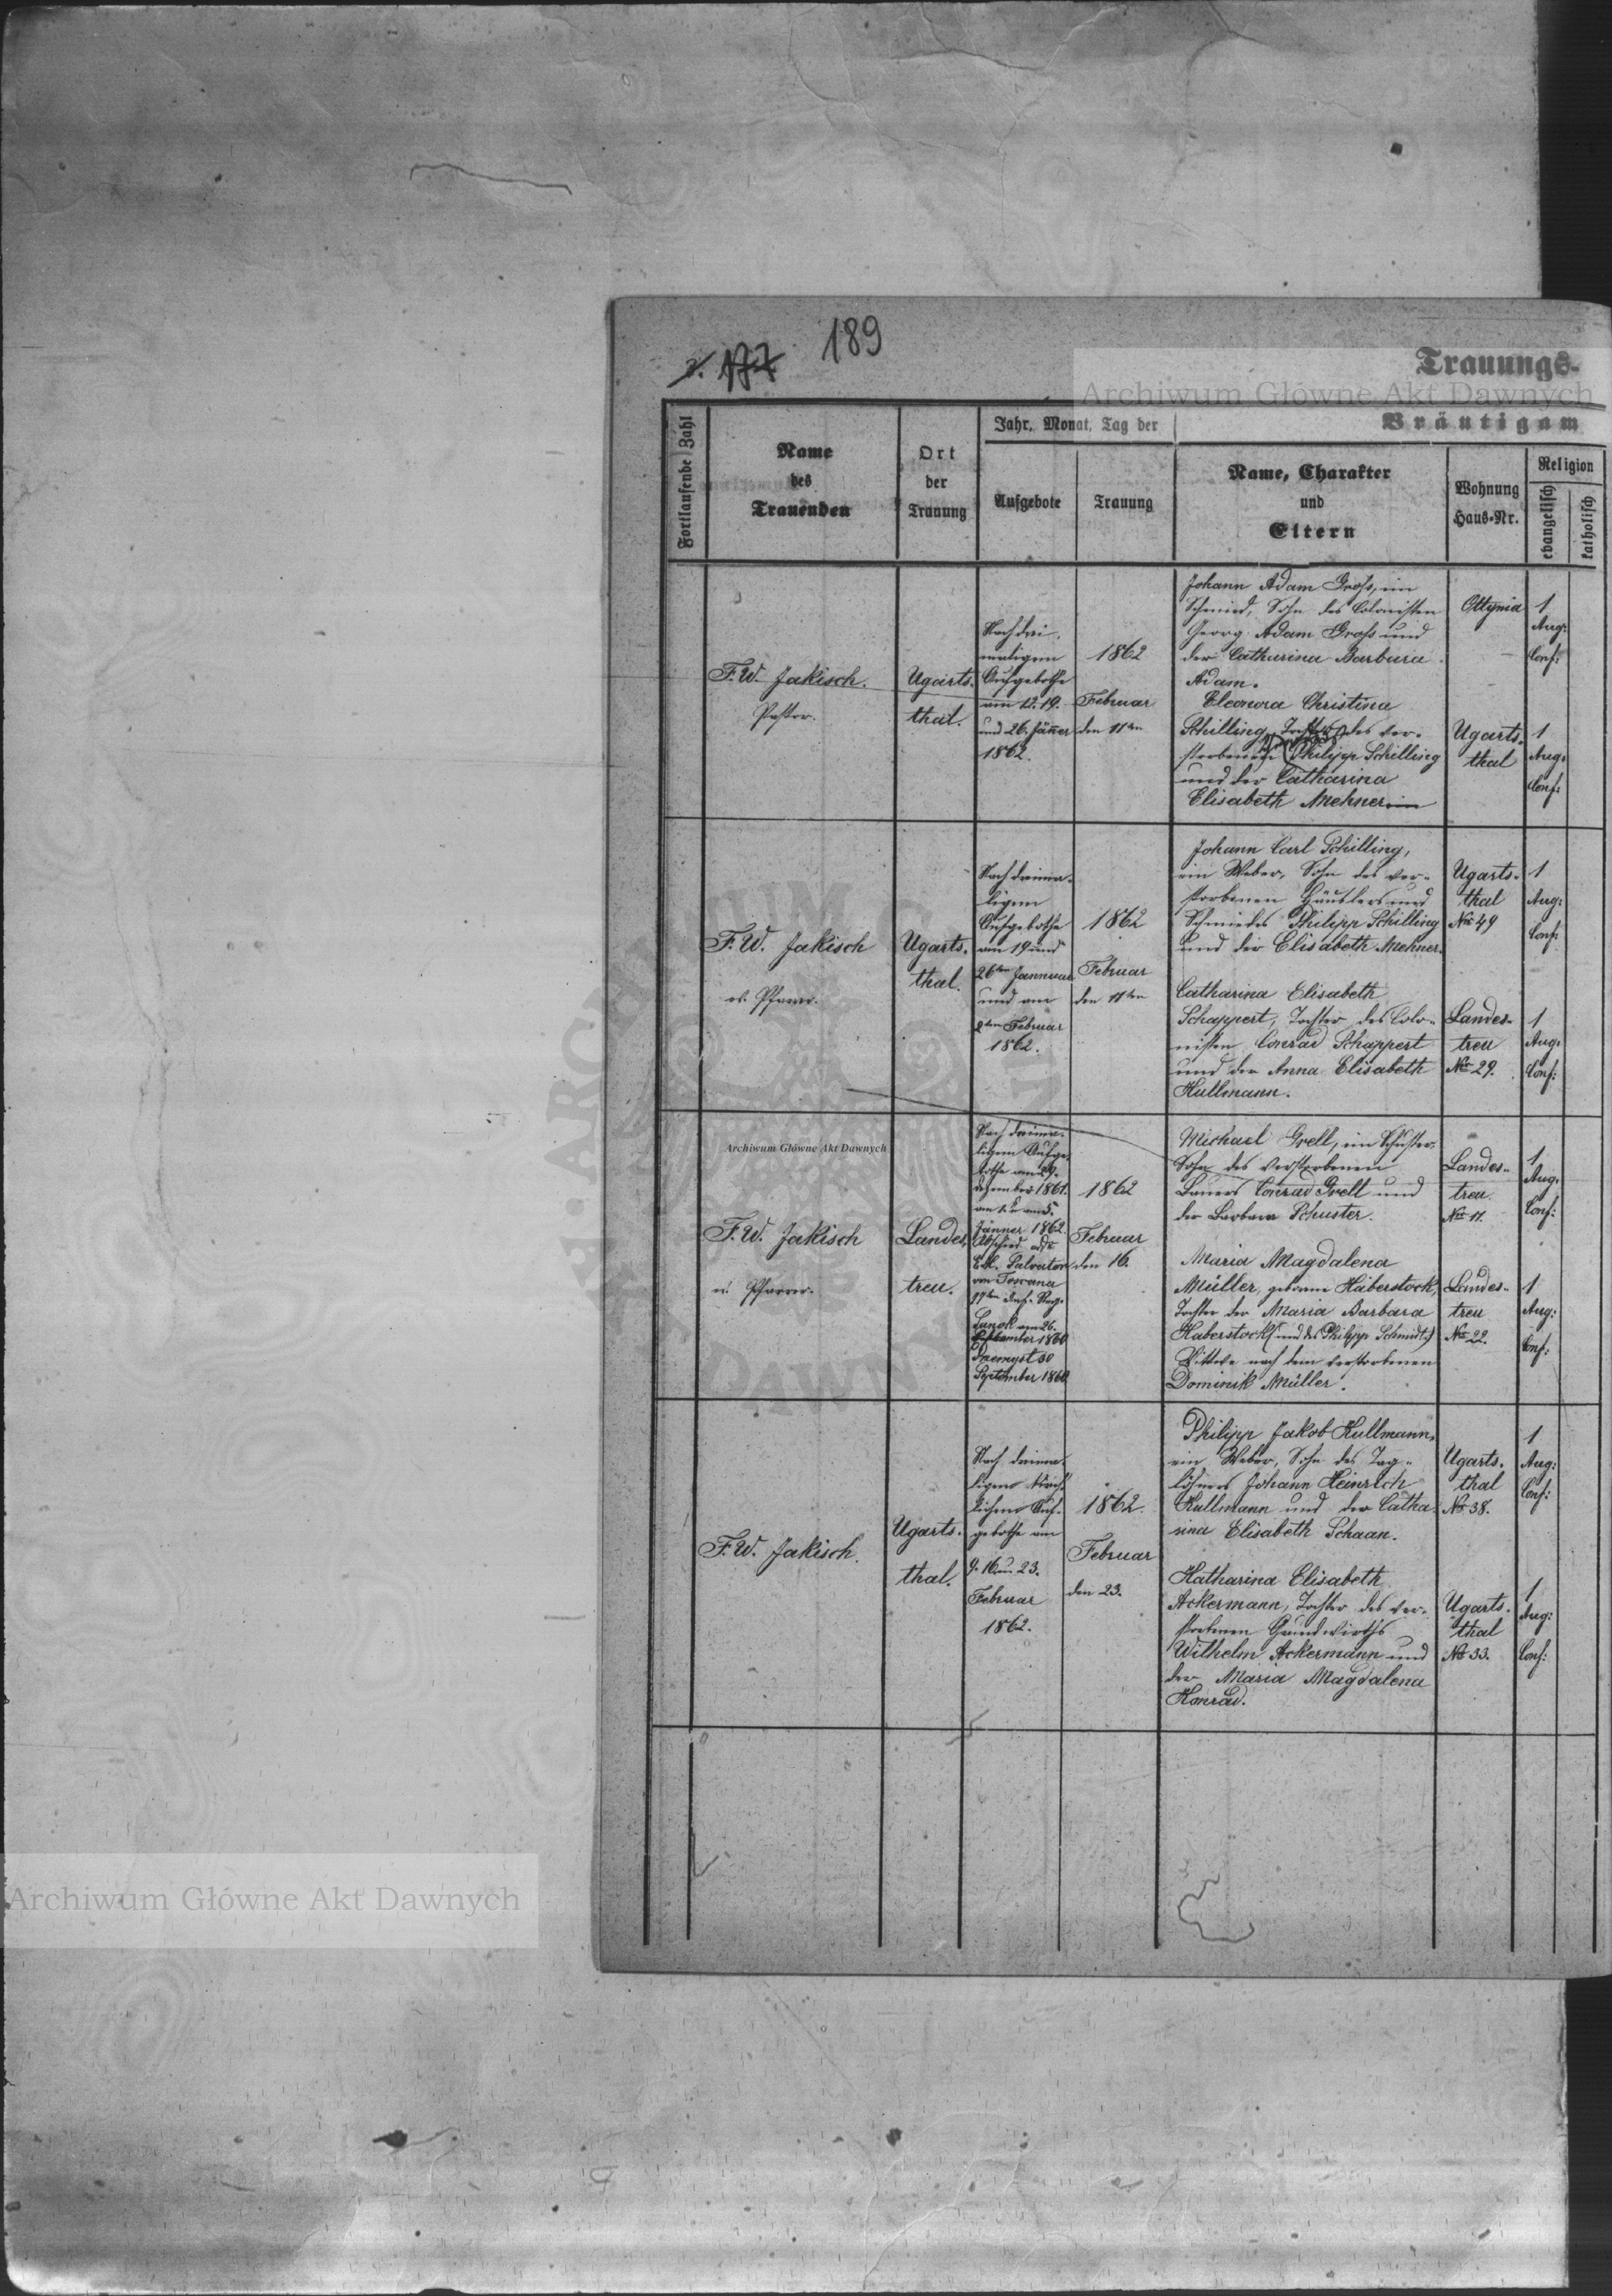 189
177
Trauungs-
Archiwum Główne Akt Dawnych
Fortlaufende Zahl
Name
des
Trauenden
Ort
der
Trauung
Jahr, Monat, Tag der
Aufgebote
Trauung
Bräutigam
Name, Charakter
und
Eltern
Wohnung
Haus-Nr.
Religion
evangelisch
katholisch
F. W. Jakisch.
Pastor.
Ugarts-
thal.
Nach drei-
maligem
Aufgebothe
am 12. 19.
und 26. Jänner
1862.
1862
Februar
den 11ten
Johann Adam Groß, ein
Schmied, Sohn des Colonisten
Georg Adam Groß und
der Catharina Barbara
Adam.
Eleonora Christina
Schilling, Tochter des ver-
storbenen Philipp Schilling
und der Catharina
Elisabeth Mehnerin
Ottynia
Ugarts-
thal
1
Aug:
Conf:
1
Aug:
Conf:
F. W. Jakisch
ev. Pfarrer.
Ugarts-
thal.
Nach dreima-
ligem
Aufgebothe
am 19 und
26ten Jannuar
und am
2ten Februar
1862.
1862
Februar
den 11ten
Johann Carl Schilling,
ein Weber, Sohn des ver-
storbenen Häuslers und
Schmiedes Philipp Schilling
und der Elisabeth Mehner.
Catharina Elisabeth
Schappert, Tochter des Colo-
nisten Conrad Schappert
und der Anna Elisabeth
Kullmann.
Ugarts-
thal
No 49
Landes-
treu
No 29.
1
Aug:
Conf:
1
Aug:
Conf:
Archiwum Główne Akt Dawnych
F. W. Jakisch
ev. Pfarrer.
Landes-
treu.
Nach dreima-
ligem Aufge-
bothe am 29.
Dezember 1861.
am 1. u. am 5.
Jänner 1862.
Abschied
Salvator
von Toscana
77ten Inf. Reg.
Sanok am 26.
September 1860
Przemysl 30
September 1860
1862
Februar
den 16.
Michael Grell, ein Schuster,
Sohn des verstorbenen
Bauers Conrad Grell und
der Barbara Schuster.
Maria Magdalena
Müller, geborne Haberstock,
Tochter der Maria Barbara
Haberstock (und des Philipp Schmidt)
Wittwe nach dem verstorbenen
Dominik Müller.
Landes-
treu.
No 11.
Landes-
treu
No 22.
1
Aug:
Conf:
1
Aug:
Conf:
F. W. Jakisch.
Ugarts-
thal.
Nach dreima-
ligem kirch-
lichem Auf-
gebothe am
9. 16. u. 23.
Februar
1862.
1862.
Februar
den 23.
Philipp Jakob Kullmann,
ein Weber, Sohn des Tag-
löhners Johann Heinrich
Kullmann und der Catha-
rina Elisabeth Schaan.
Katharina Elisabeth
Ackermann, Tochter des ver-
storbenen Grundwirth's
Wilhelm Ackermann und
der Maria Magdalena
Konrad.
Ugarts-
thal
No 38.
Ugarts-
thal
No 33.
1
Aug:
Conf:
1
Aug:
Conf:
Archiwum Główne Akt Dawnych